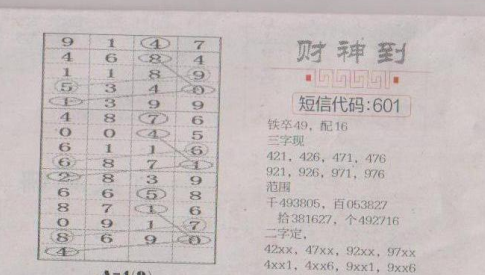 9 1 4 7
4 6 8 4
1 1 8 9
5 3 4 0
1 3 9 9
4 8 7 6
0 0 4 5
6 1 1 6
6 8 7 1
2 8 3 9
6 6 5 8
8 7 1 6
0 9 1 7
8 6 9 0
4
财神到
短信代码:601
铁卒49，配16
三字现
421，426，471，476
921，926，971，976
范围
千493805，百053827
拾381627，个492716
二字定，
42xx，47xx，92xx，97xx
4xx1，4xx6，9xx1，9xx6